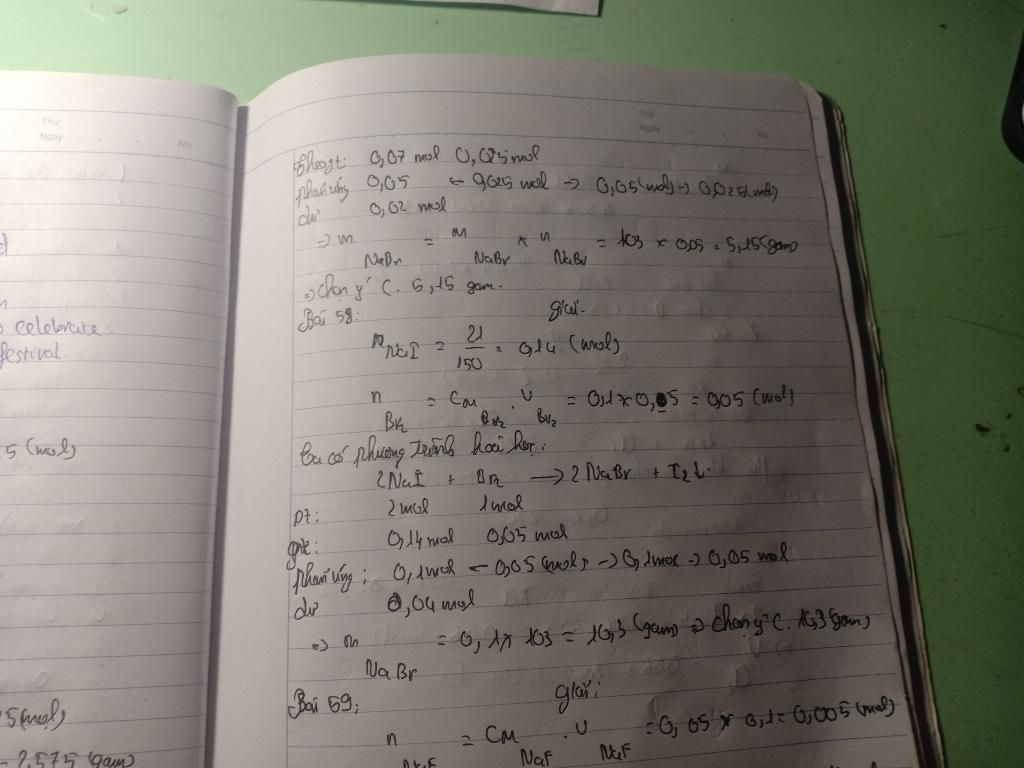 Thứ
Ngày
No.
Thứ
Ngày
No.
celebrate
festival
5 (mol)
5 (mol)
= 2,575 (gam)
theo gt: 0,07 mol 0,025 mol
phản ứng 0,05 ← 0,025 mol → 0,05 (mol) → 0,025 (mol)
dư 0,02 mol
⇒ m NaBr = M NaBr × n NaBr = 103 × 0,05 = 5,15 (gam)
⇒ chọn ý C. 5,15 gam.
Bài 58: giải.
n NaI = 21/150 = 0,14 (mol)
n Br2 = CM Br2 . V Br2 = 0,1 × 0,5 = 0,05 (mol)
Ta có phương trình hoá học:
2NaI + Br2 → 2NaBr + I2↓.
pt: 2mol 1mol
gt: 0,14 mol 0,05 mol
phản ứng: 0,1mol ← 0,05 (mol) → 0,1mol → 0,05 mol
dư 0,04 mol
⇒ m NaBr = 0,1 × 103 = 10,3 (gam) ⇒ chọn ý C. 10,3 (gam)
Bài 59: giải:
n NaF = CM NaF . V NaF = 0,05 × 0,1 = 0,005 (mol)